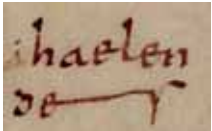 haelen
de